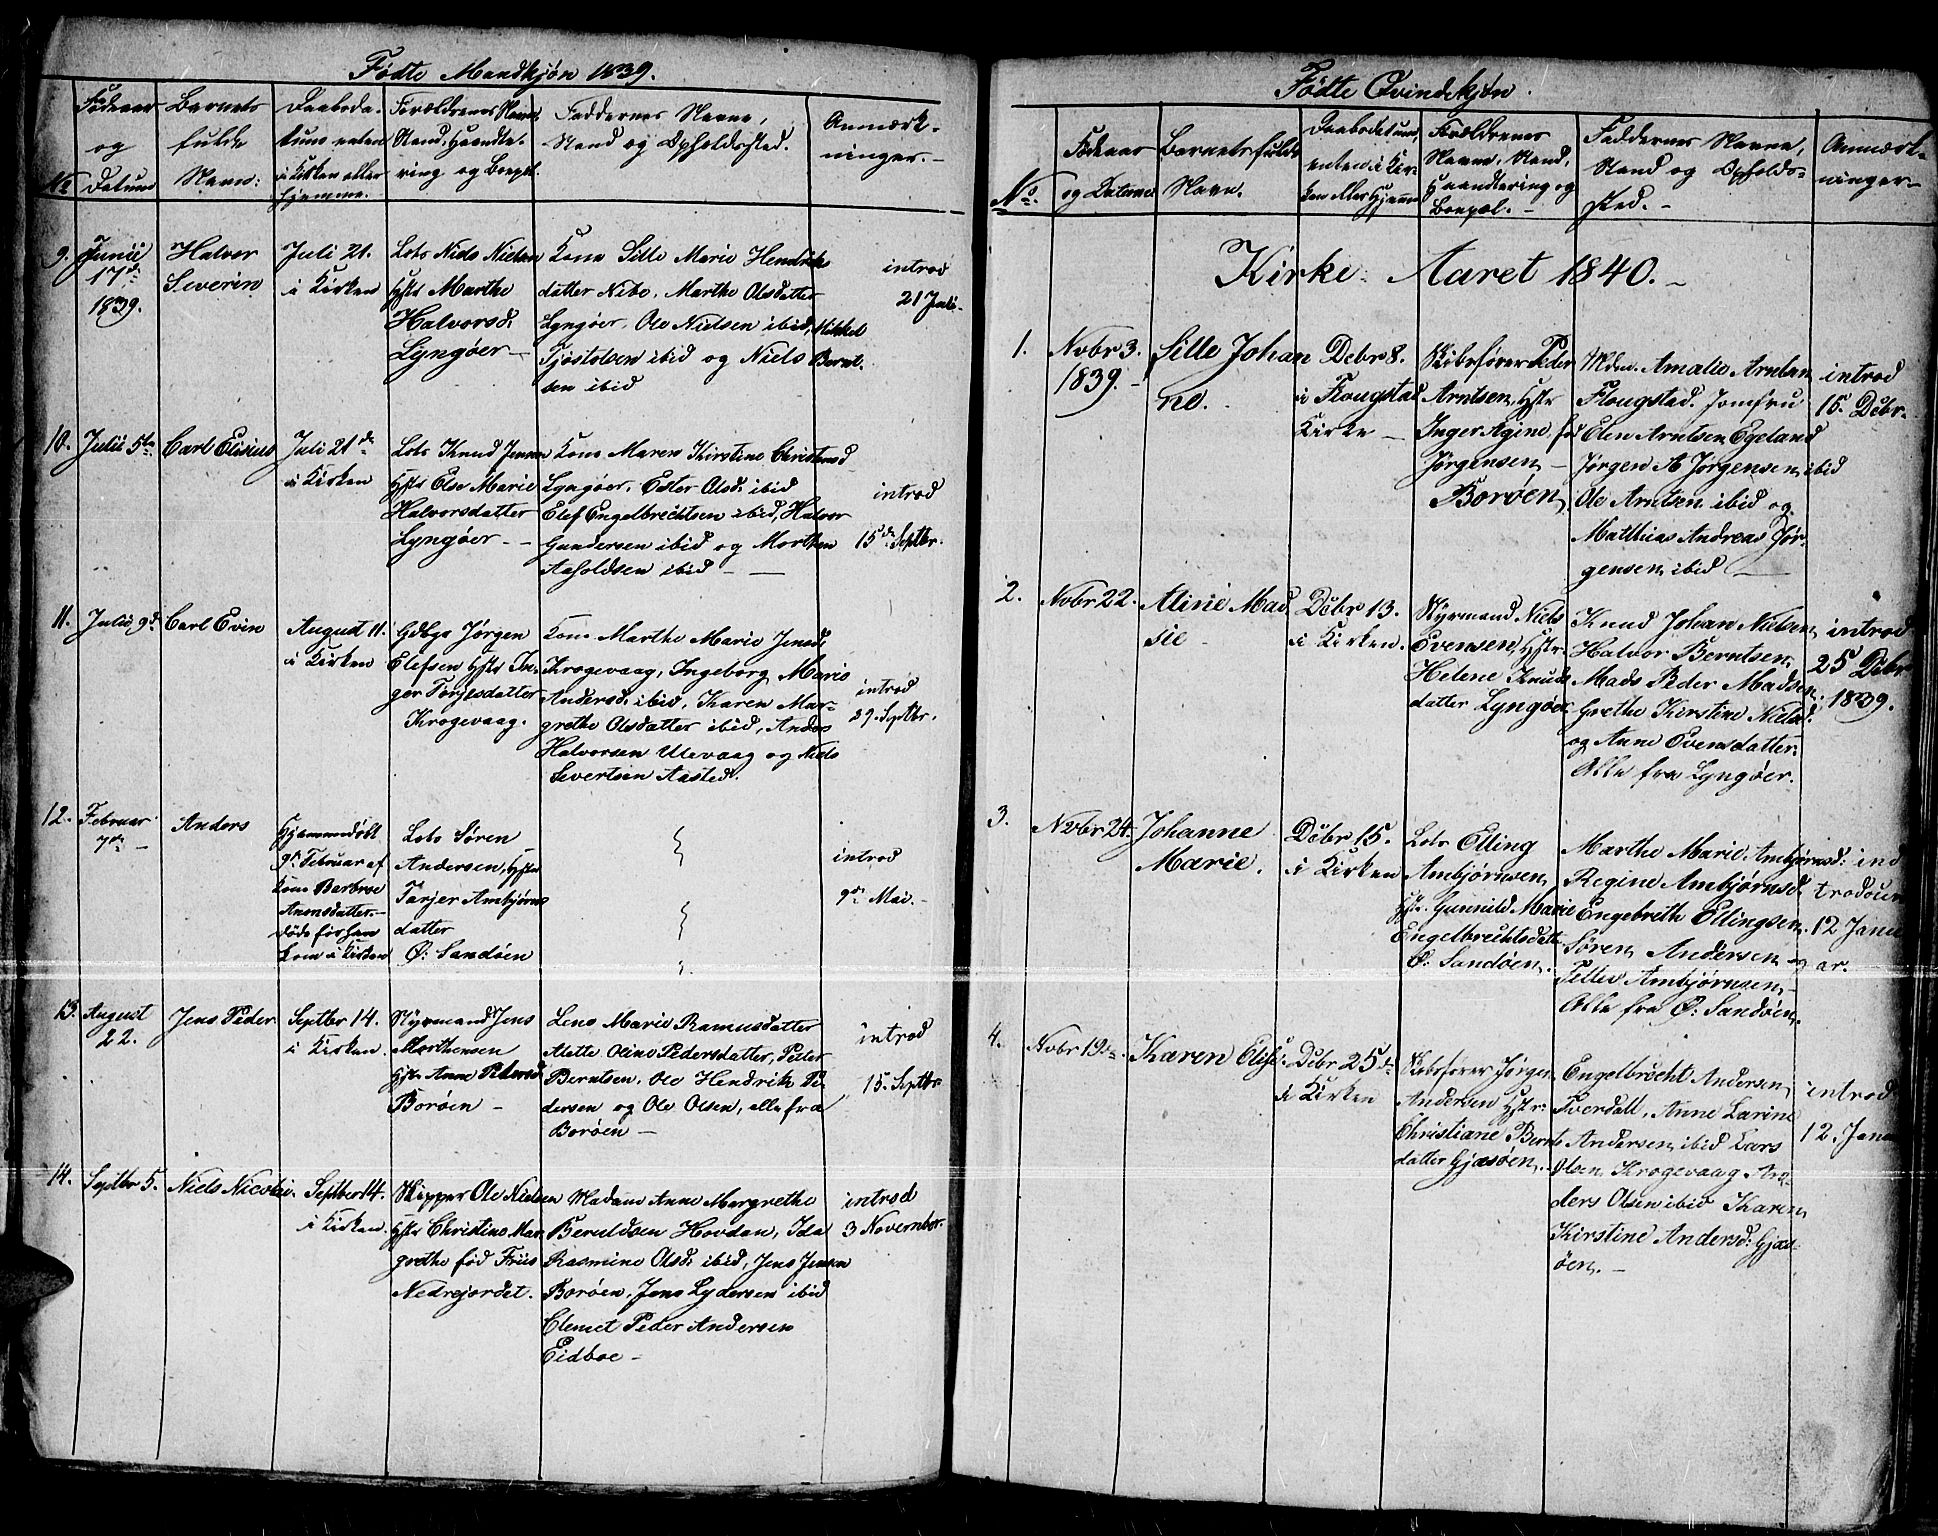 Fødte Mandkjøn 1839.
No
Fødeaar
og
Datum
Barnets
fulde
Navn:
Daabsda-
tum enten
i Kirken eller
hjemme.
Forældrenes Navne
Stand, Haandte-
ring og Bopæl.
Faddernes Navne,
Stand og Opholdssted.
Anmærk-
ninger.
9.
Junii
17de
1839.
Halvor
Severin
Juli 21.
i Kirken
Lots Niels Nielsen
Hstr Marthe
Halvorsd:
Lyngøer
Kone Sille Marie Hendriks
datter Nibo, Marthe Olsdatter
Lyngøer, Ole Nielsen ibid, Mikkel
Tjøstolsen ibid og Niels Bernt-
sen ibid
introd
21 Juli.
10.
Julii 5te
Carl Elisius
Juli 21de
i Kirken
Lots Knud Jensen
Hstr Else Marie
Halvorsdatter
Lyngøer
Kone Maren Kirstine Christensd
Lyngøer, Ester Olsd: ibid
Elef Engelbrechtsen ibid, Halvor
Gundersen ibid og Morthen
Aasoldsen ibid
introd
15de Septbr.
11.
Julii 9d
Carl Evin
August 11.
i Kirken
Gdbgr Jørgen
Elefsen Hstr In-
ger Torjesdatter
Krogevaag.
Kone Marthe Marie Jensd:
Krogevaag, Ingeborg Marie
Andersd: ibid, Karen Mar-
grethe Olsdatter ibid, Anders
Halvorsen Ulevaag og Niels
Severtsen Aasted.
introd
29. Septbr.
12.
Februar
7de
Anders
Hjemmedøbt
9de Februar af
Kone Barbroe
Aanonsdatter.
døde før han
kom i Kirken
Lots Søren
Andersen, Hstr
Tarjer Ambjørns
datter
Ø: Sandøen
introd
9de Mai.
13.
August
22.
Jens Peder
Septbr 14.
i Kirken.
Styrmand Jens
Morthensen
Hstr Anne Pedersd
Borøen
Lene Marie Ramusdatter
Alette Oline Pedersdatter, Peder
Berntsen, Ole Hendrik Pe-
dersen og Ole Olsen, alle fra
Borøen
introd
15. Septbr
14.
Septbr 5.
Niels Nicolai
Septber 14.
i Kirken.
Skipper Ole Nielsen
Hstr Christine Mar
grethe fød Friis
Nedrejordet.
Madame Anne Margrethe
Beruldsen Hovdan, Ida
Rasmine Olsd: ibid, Jens Jensen
Borøen, Jens Lydersen ibid
Clemet Peder Andersen
Eidboe
introd
3 November.
Fødte Qvindekjøn.
No.
Fødeaar
og Datum
Barnets fulde
Navn.
Daabsdatum,
enten i Kir-
ken eller Hjemme
Forældrenes
Navne, Stand,
Haandtering og
Bopæl.
Faddernes Navne,
Stand og Opholds-
sted.
Anmærk-
ninger
Kirke-Aaret 1840.
1.
Novbr 3.
1839.
Sille Johan
ne.
Debr 8.
i Flougstad
Kirke
Skibsfører Peder
Arntsen, Hstr
Inger Agine, fød
Jørgensen
Borøen
Mdm. Amalie Arntsen
Flougstad. Jomfru
Elen Arntsen Egeland
Jørgen A Jørgensen ibid
Ole Arntsen ibid og
Matthias Andreas Jør-
gensen ibid
introd
15. Debr.
2.
Novbr 22.
Aline Mad
sie
Debr 13.
i Kirken.
Styrmand Niels
Evensen, Hstr
Helene Knuds
datter Lyngøer
Knud Johan Nielsen
Halvor Berntsen,
Mads Peder Madsen
Grethe Kirstine Nielsd:
og Anne Evensdatter:
Alle fra Lyngøer.
introd
25 Debr
1839.
3.
Novbr 24.
Johanne
Marie.
Debr 15.
i Kirken
Lots Elling
Ambjørnsen,
Hstr. Gunnild Marie
Engelbrechtsdatt
Ø: Sandøen.
Marthe Marie Ambjørnsd:
Regine Ambjørnsd.
Engebreth Ellingsen.
Søren Andersen og
Tellev Ambjørnsen,
Alle fra Ø: Sandøen.
in
troduc
12 Janu
ar.
4.
Novbr 19de.
Karen Elise
Debr 25de
i Kirken
Skibsfører Jørgen
Andersen Hstr:
Christiane Bernts
datter Gjæsøen.
Engelbrecht Andersen
Tverdall, Anne Larine
Andersen, ibid Lars
Olsen Krogevaag An-
ders Olsen ibid Karen
Kirstine Andersd: Gjæs-
øen.
introd
12. Janu